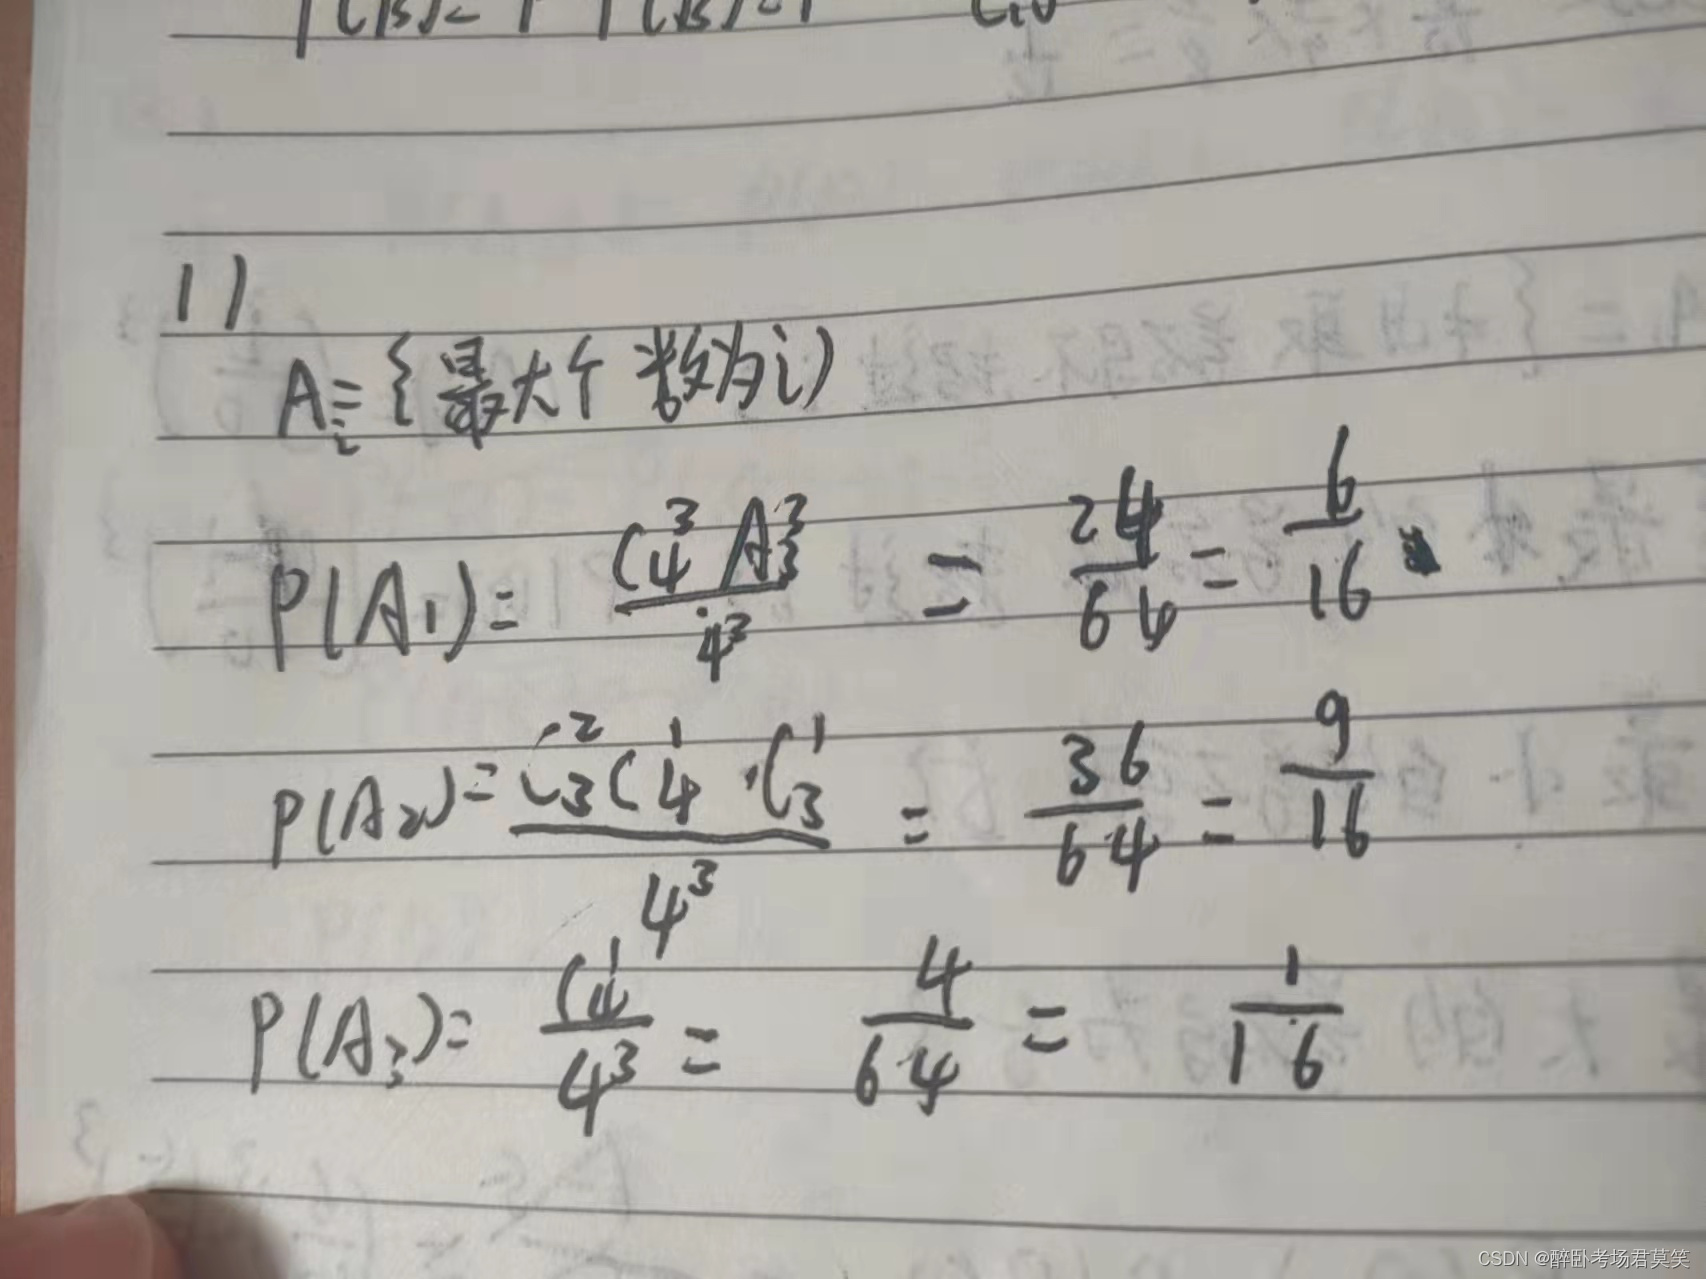 11)
A_i = {最大个数为i}
P(A₁) = C₄³ A₃³ / 4³ = 24/64 = 6/16
P(A₂) = C₃² C₄¹ · C₃¹ / 4³ = 36/64 = 9/16
P(A₃) = C₄¹ / 4³ = 4/64 = 1/16
CSDN @醉卧考场君莫笑